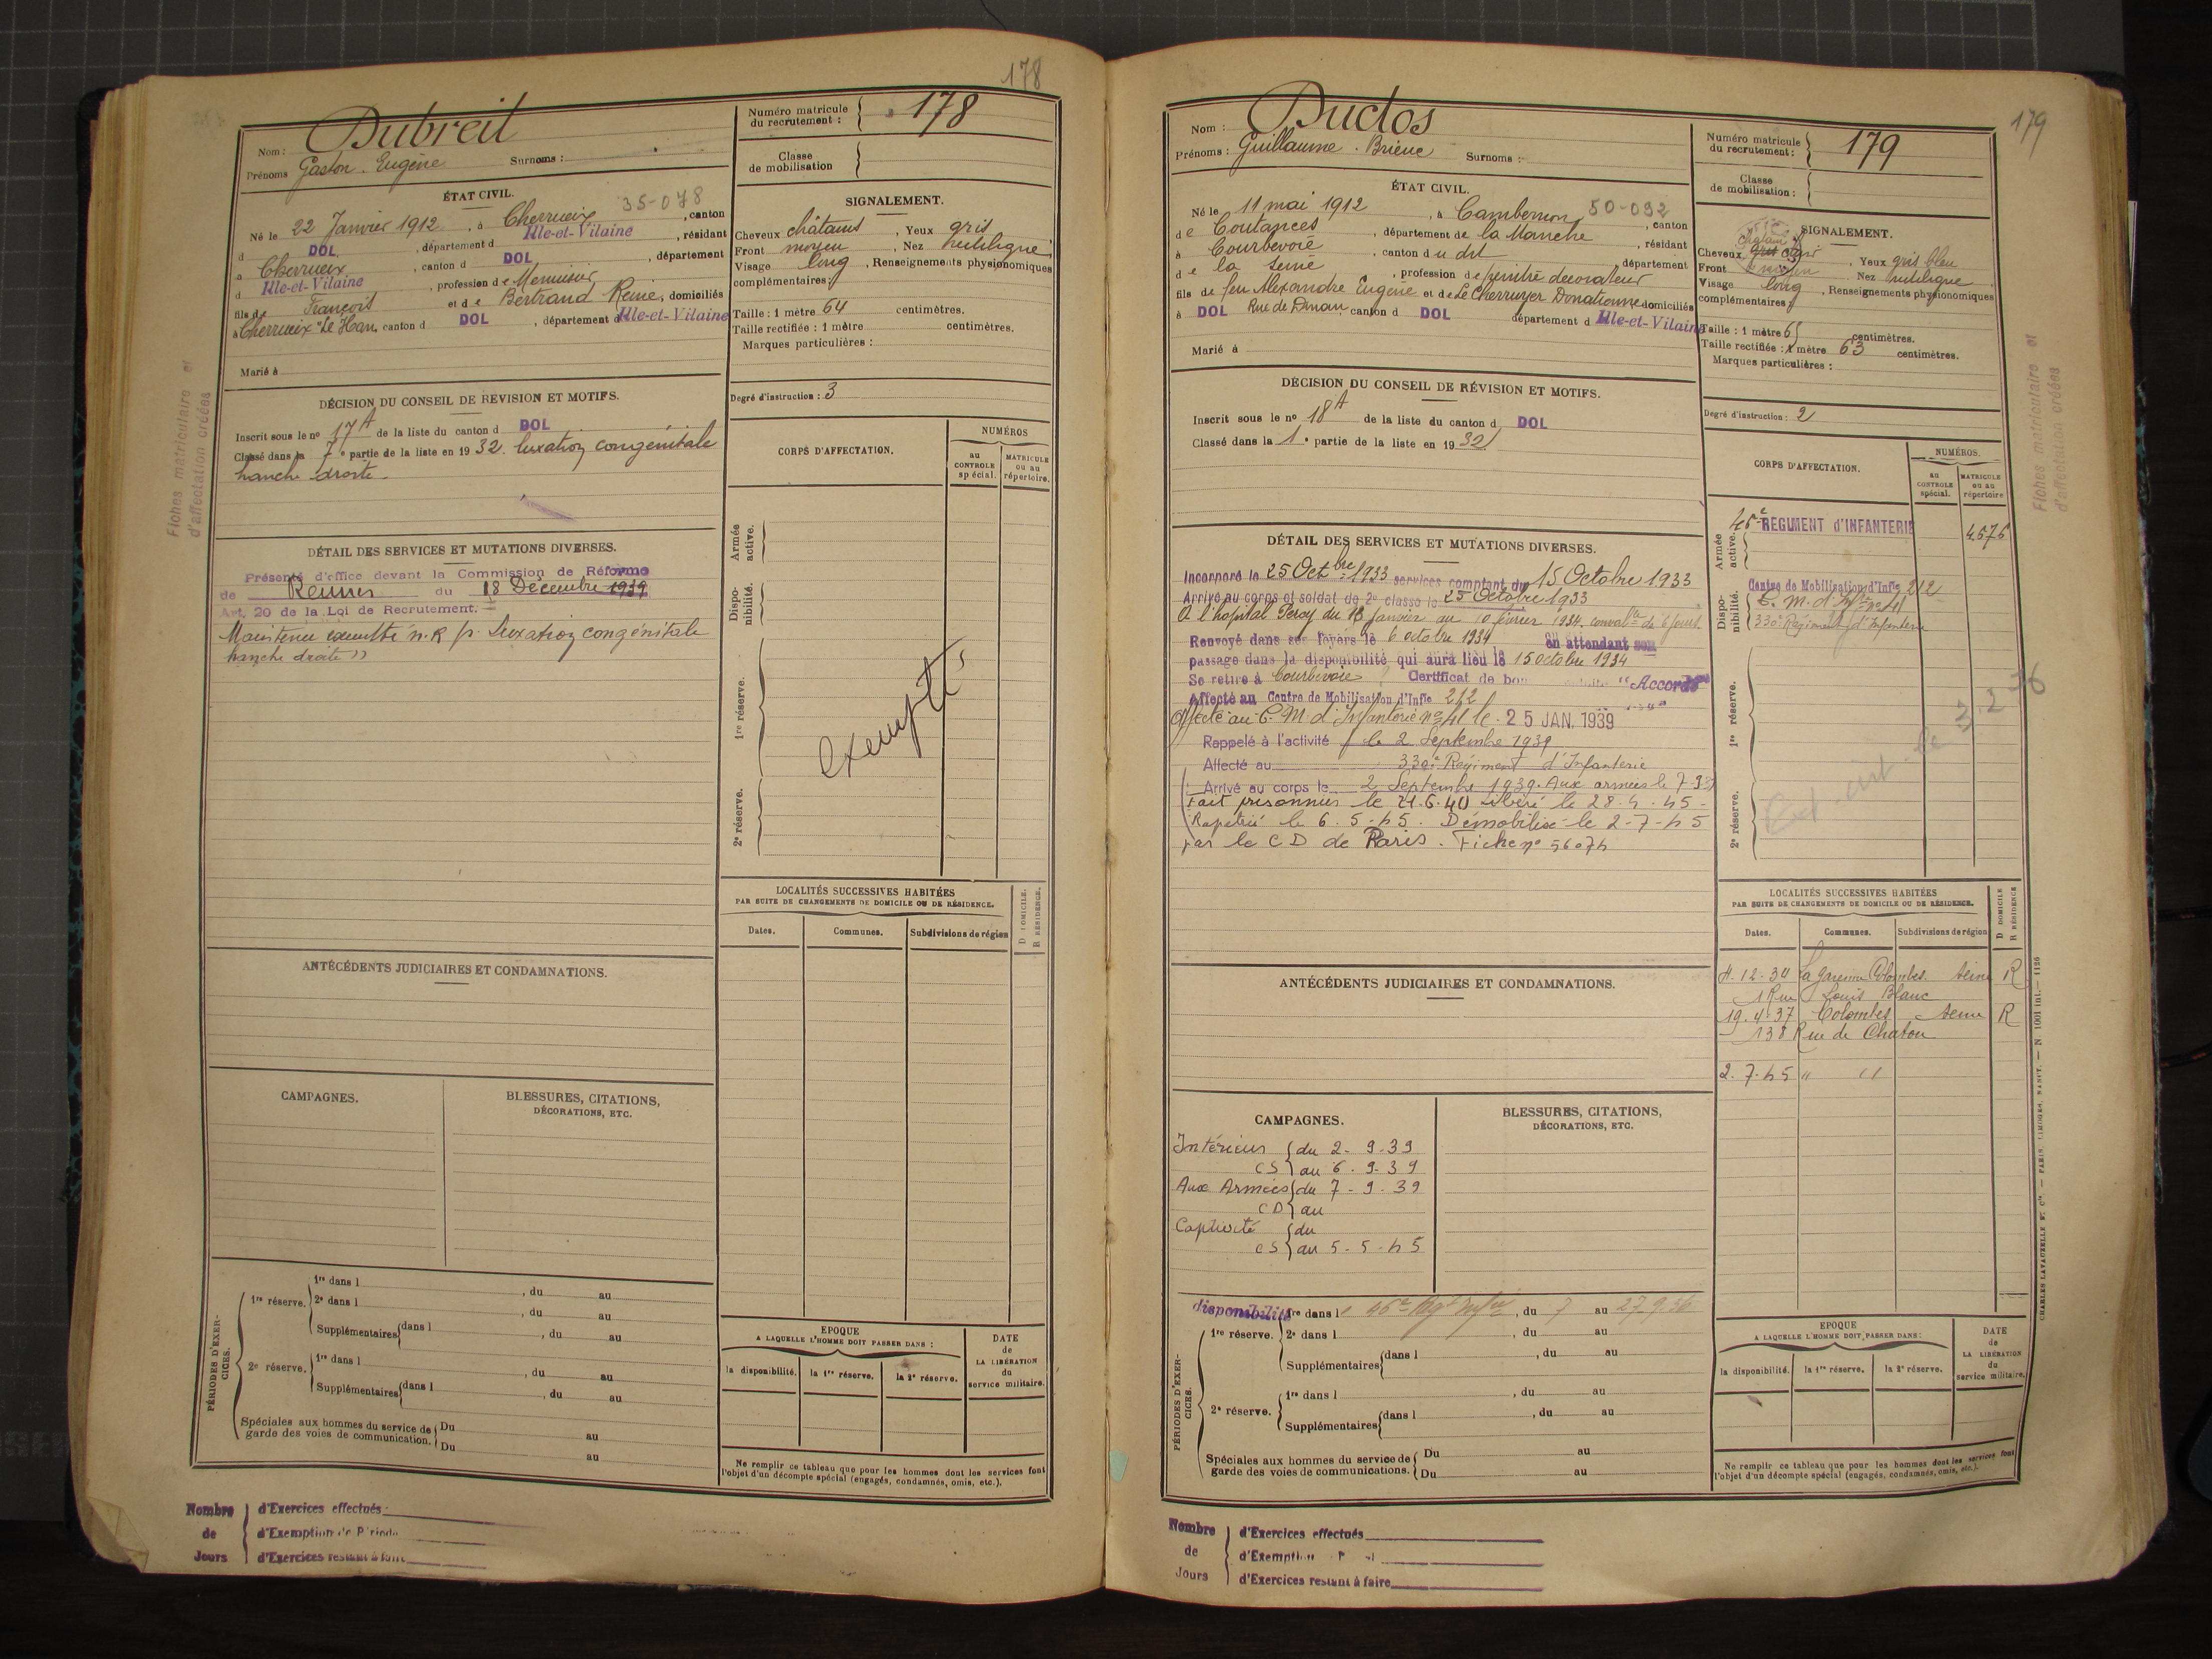 178
Nom : Dubreil
Prénoms Gaston. Eugène Surnoms :
Numéro matricule du recrutement : 178
Classe de mobilisation
ÉTAT CIVIL.
35-078
Né le 22 Janvier 1912, à Cherrueix, canton
d DOL, département d Ille-et-Vilaine, résidant
à Cherrueix, canton d DOL, département
d Ille-et-Vilaine, profession de Menuisier
fils de François et de Bertrand Reine, domiciliés
à Cherrueix "Le Han, canton d DOL, département d Ille-et-Vilaine
Marié à
SIGNALEMENT.
Cheveux châtains, Yeux gris
Front moyen, Nez rectiligne
Visage long, Renseignements physionomiques
complémentaires :
Taille : 1 mètre 64 centimètres.
Taille rectifiée : 1 mètre centimètres.
Marques particulières :
Degré d'instruction : 3
DÉCISION DU CONSEIL DE RÉVISION ET MOTIFS.
Inscrit sous le no 17A de la liste du canton d DOL
Classé dans la 7e partie de la liste en 1932. luxation congénitale
hanche droite.
DÉTAIL DES SERVICES ET MUTATIONS DIVERSES.
Présenté d'office devant la Commission de Réforme
de Rennes du 18 Décembre 1939
Art. 20 de la Loi de Recrutement.
Maintenu exempté n.R p. luxation congénitale
hanche droite »
CORPS D'AFFECTATION.
NUMÉROS
au CONTROLE spécial.
MATRICULE ou au répertoire.
Armée active.
Disponibilité.
1re réserve.
2e réserve.
exempté
Fiches matriculaire et
d'affectation créées
ANTÉCÉDENTS JUDICIAIRES ET CONDAMNATIONS.
LOCALITÉS SUCCESSIVES HABITÉES
PAR SUITE DE CHANGEMENTS DE DOMICILE OU DE RÉSIDENCE.
D DOMICILE.
R RÉSIDENCE.
Dates. Communes. Subdivisions de région
CAMPAGNES.
BLESSURES, CITATIONS,
DÉCORATIONS, ETC.
PÉRIODES D'EXERCICES.
1re réserve. 1re dans l , du au
2e dans l , du au
Supplémentaires dans l , du au
2e réserve. 1re dans l , du au
Supplémentaires dans l , du au
Spéciales aux hommes du service de garde des voies de communication. Du au
Du au
EPOQUE
A LAQUELLE L'HOMME DOIT PASSER DANS :
la disponibilité. la 1re réserve. la 2e réserve.
DATE de LA LIBÉRATION du service militaire.
Ne remplir ce tableau que pour les hommes dont les services font
l'objet d'un décompte spécial (engagés, condamnés, omis, etc.).
Nombre de Jours
d'Exercices effectués
d'Exemption de Période
d'Exercices restant à faire
179
Nom : Duclos
Prénoms : Guillaume. Brieuc Surnoms :
Numéro matricule du recrutement : 179
Classe de mobilisation :
ÉTAT CIVIL.
50-092
Né le 11 mai 1912, à Cambernon, canton
de Coutances, département de la Manche, résidant
à Courbevoie, canton du dit, département
de la Seine, profession de peintre décorateur
fils de feu Alexandre Eugène et de Le Cherruyer Donatienne domiciliés
à DOL Rue de Dinan canton d DOL département d Ille-et-Vilaine
Marié à
SIGNALEMENT.
Cheveux châtain, Yeux gris bleu
Front moyen Nez rectiligne
Visage long, Renseignements physionomiques
complémentaires
Taille : 1 mètre 65 centimètres.
Taille rectifiée : 1 mètre 63 centimètres.
Marques particulières :
Degré d'instruction : 2
DÉCISION DU CONSEIL DE RÉVISION ET MOTIFS.
Inscrit sous le no 18A de la liste du canton d DOL
Classé dans la 1e partie de la liste en 1932
DÉTAIL DES SERVICES ET MUTATIONS DIVERSES.
Incorporé le 25 Octbre 1933 services comptant du 15 Octobre 1933
Arrivé au corps et soldat de 2e classe le 25 Octobre 1933
A l'hôpital Percy du 18 Janvier au 10 février 1934. convalce de 6 jours.
Renvoyé dans ses foyers le 6 octobre 1934 en attendant son
passage dans la disponibilité qui aura lieu le 15 octobre 1934
Se retire à Courbevoie Certificat de bonne conduite "Accordé"
Affecté au Centre de Mobilisation d'Infie 212
Affecté au C. M d'Infanterie no 41 le 25 JAN. 1939
Rappelé à l'activité le 2 Septembre 1939
Affecté au 330e Régiment d'Infanterie
Arrivé au corps le 2 Septembre 1939. Aux armées le 7-9-39
Fait prisonnier le 21.6.40 Libéré le 28.4.45-
Rapatrié le 6.5.45. Démobilisé le 2-7-45
par le CD de Paris. Fiche no 56074
CORPS D'AFFECTATION.
NUMÉROS.
au CONTROLE spécial.
MATRICULE ou au répertoire
Armée active. 46e REGIMENT d'INFANTERIE 4576
Disponibilité. Centre de Mobilisation d'Infie 212
C. M. d'Infie no 41
330e Régiment d'Infanterie
1re réserve.
2e réserve.
Fiches matriculaire et
d'affectation créées
ANTÉCÉDENTS JUDICIAIRES ET CONDAMNATIONS.
LOCALITÉS SUCCESSIVES HABITÉES
PAR SUITE DE CHANGEMENTS DE DOMICILE OU DE RÉSIDENCE.
D DOMICILE
R RÉSIDENCE
Dates. Communes. Subdivisions de région
4-12-34 La Garenne Colombes. Seine R
1 Rue Louis Blanc
19.4.37 Colombes Seine R
138 Rue de Chatou
2.7.45 " "
CAMPAGNES.
Intérieur CS du 2-9-39
au 6.9.39
Aux Armées CD du 7-9-39
au
Captivité CS du
au 5-5-45
BLESSURES, CITATIONS,
DÉCORATIONS, ETC.
PÉRIODES D'EXERCICES.
disponibilité 1re dans le 46e Rgt Infie, du 7 au 27.9.36
1re réserve. 2e dans l , du au
Supplémentaires dans l , du au
2e réserve. 1re dans l , du au
Supplémentaires dans l , du au
Spéciales aux hommes du service de garde des voies de communications. Du au
Du au
EPOQUE
A LAQUELLE L'HOMME DOIT PASSER DANS :
la disponibilité. la 1re réserve. la 2e réserve.
DATE de LA LIBÉRATION du service militaire.
Ne remplir ce tableau que pour les hommes dont les services font
l'objet d'un décompte spécial (engagés, condamnés, omis, etc.).
CHARLES LAVAUZELLE ET Cie. — PARIS, LIMOGES, NANCY. — N 1001 int. — 1126
Nombre de Jours
d'Exercices effectués
d'Exemption
d'Exercices restant à faire